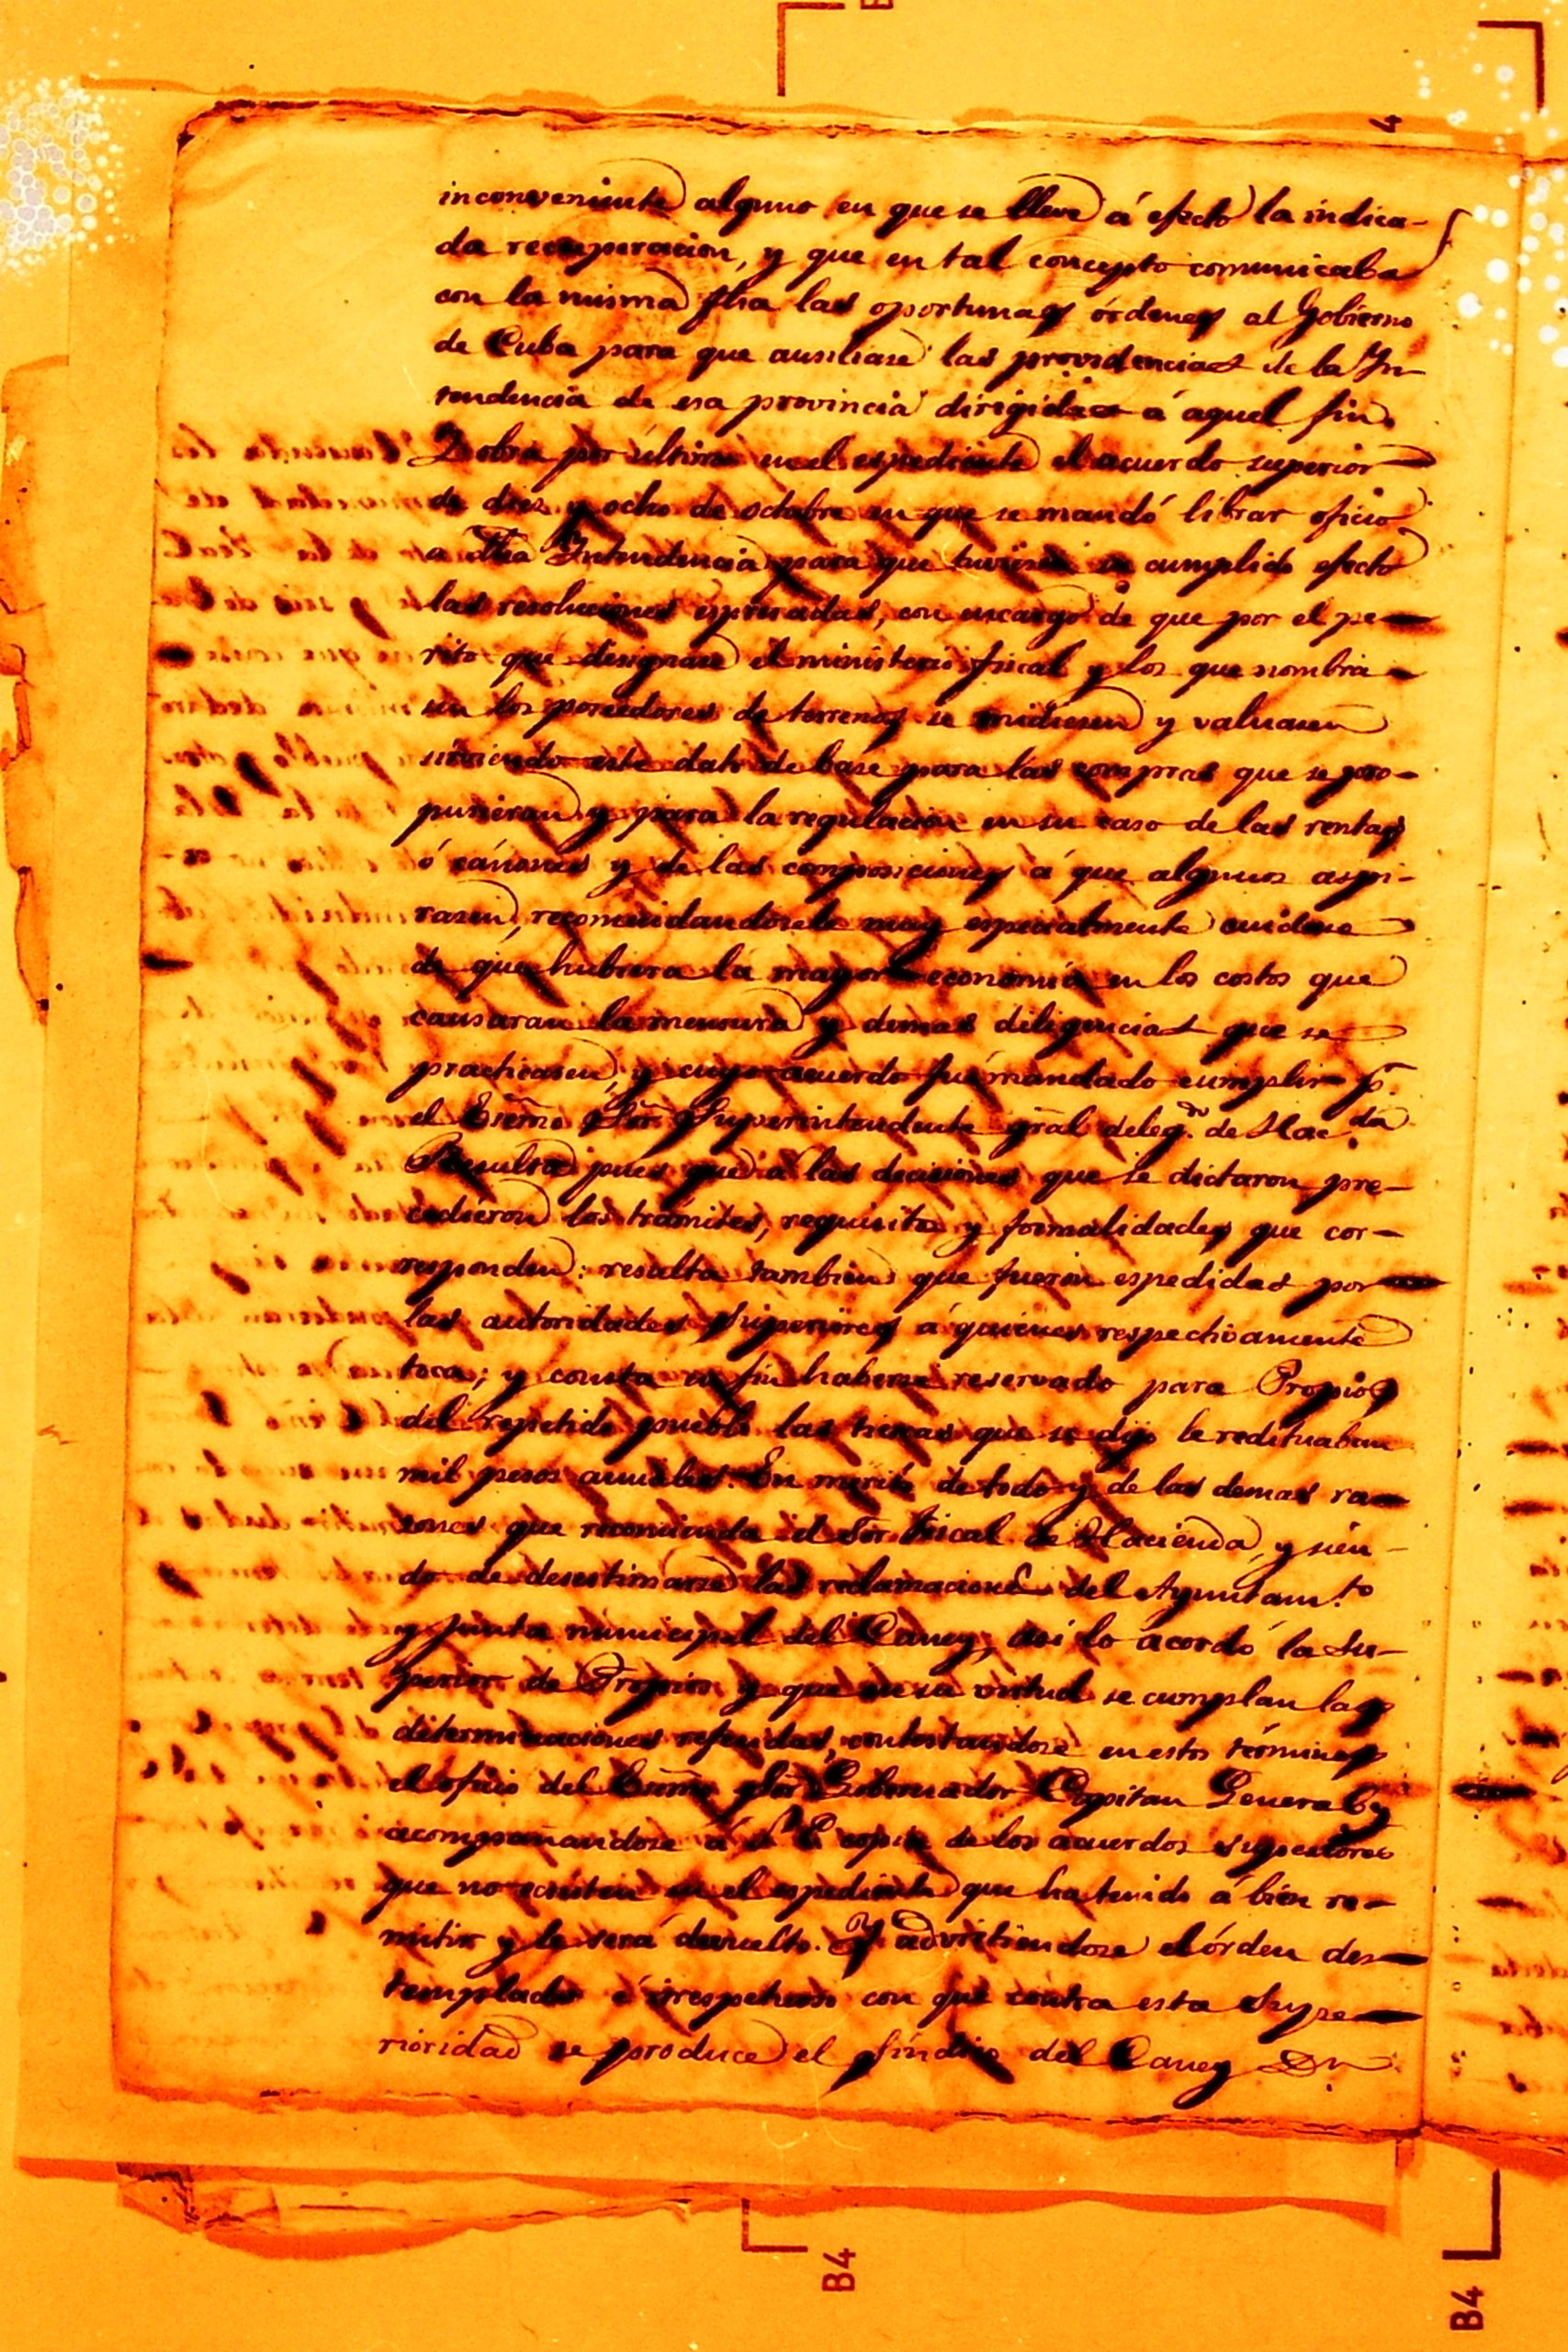 4
inconveniente alguno en que se lleve á efecto la indica-
da recuperacion, y que en tal concepto comunicaba
con la misma fha las oportunas órdenes al Gobierno
de Cuba para que ausiliase las providencias de la In-
tendencia de esa provincia dirigidas á aquel fin.
Y obra por último en el espediente el acuerdo superior
de diez y ocho de octubre en que se mandó librar oficio
a dha Intendencia para que tuviesen su cumplido efecto
las resoluciones espresadas, con encargo de que por el pe-
rito que designase el ministerio fiscal y los que nombra-
sen los poseedores de terrenos se midiesen y valuasen
sirviendo este dato de base para las compras que se pro-
pusieran y para la regulacion en su caso de las rentas
ó cánones y de las composiciones á que algunos aspi-
rasen, recomendandosele muy especialmente cuidase
de que hubiera la mayor economia en los costos que
causaran la mensura y demas diligencias que se
practicasen, y cuyo acuerdo fué mandado cumplir pr
el Exmo Sor Superintendente gral deleg.do de Hac.da
Resulta pues que á las decisiones que se dictaron pre-
cedieron los trámites, requisitos y formalidades que cor-
responden: resulta tambien que fueron espedidas por
las autoridades superiores á quienes respectivamente
toca; y consta en fin haberse reservado para Propios
del repetido pueblo las tierras que se dijo le redituaban
mil pesos anuales. En mérito de todo y de las demas ra-
zones que recomienda el Sor Fiscal de Hacienda, y sien-
do de desestimarse las reclamaciones del Ayuntam.to
y junta municipal del Caney, asi lo acordó la Su-
perior de Propios y que en su virtud se cumplan las
determinaciones referidas, contestandose en estos términos
el oficio del Exmo Sor Gobernador Capitan General y
acompañandose á S. E. copia de los acuerdos superiores
que no ecsisten en el espediente que ha tenido á bien re-
mitir y le será devuelto. Y advirtiendose el órden des-
templado é irrespetuoso con que contra esta Supe-
rioridad se produce el síndico del Caney Dn
B4
B4